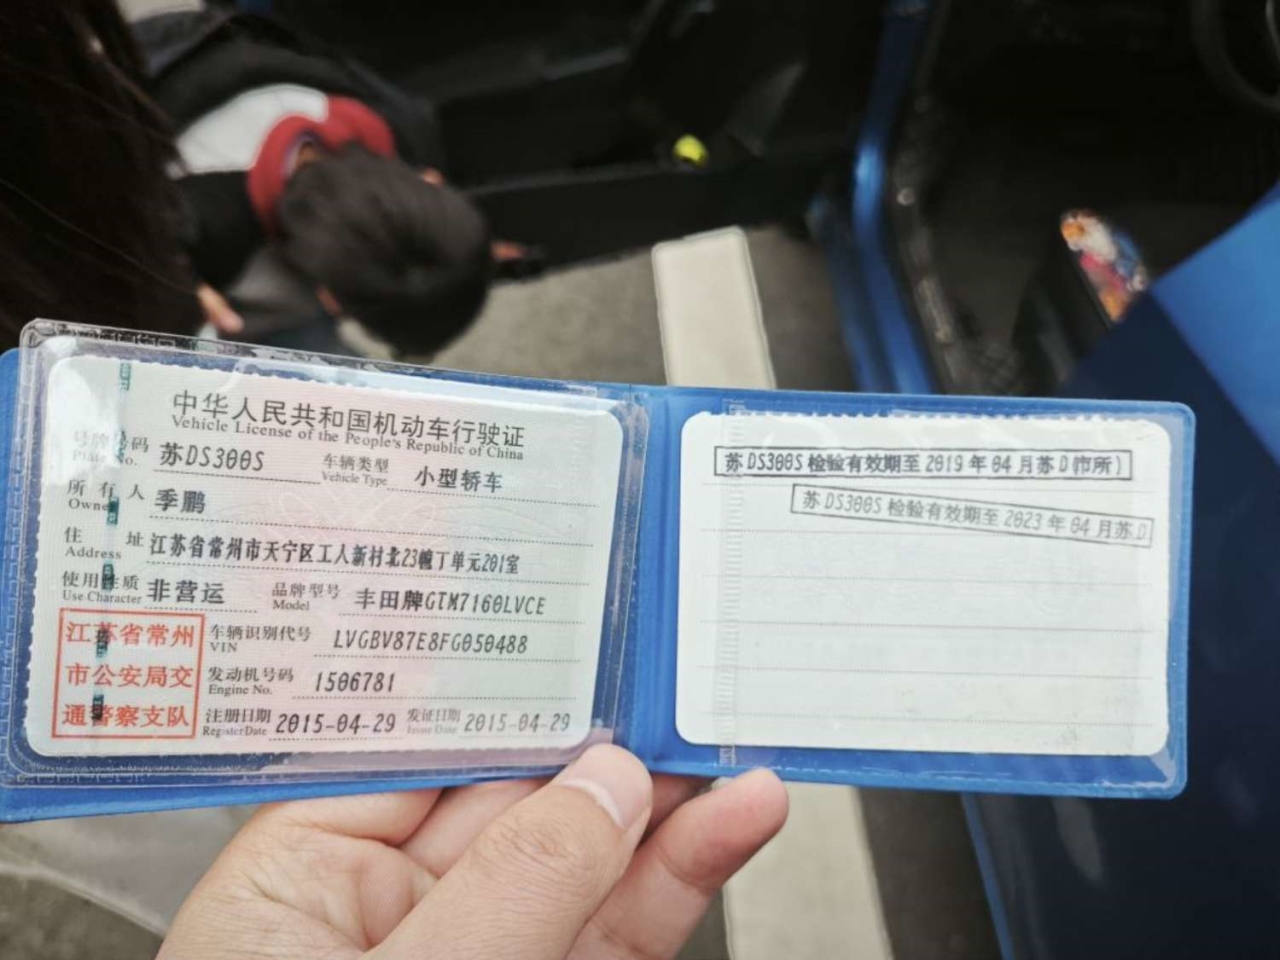 中华人民共和国机动车行驶证
Vehicle License of the People's Republic of China
号牌号码 苏DS300S 车辆类型 小型轿车
Plate No. Vehicle Type
所有人 季鹏
Owner
住址 江苏省常州市天宁区工人新村北23幢丁单元201室
Address
使用性质 非营运 品牌型号 丰田牌GTM7160LVCE
Use Character Model
江苏省常州
市公安局交
通警察支队
车辆识别代号 LVGBV87E8FG050488
VIN
发动机号码 1506781
Engine No.
注册日期 2015-04-29 发证日期 2015-04-29
Register Date Issue Date
苏DS300S检验有效期至2019年04月苏D(市所)
苏DS300S检验有效期至2023年04月苏D